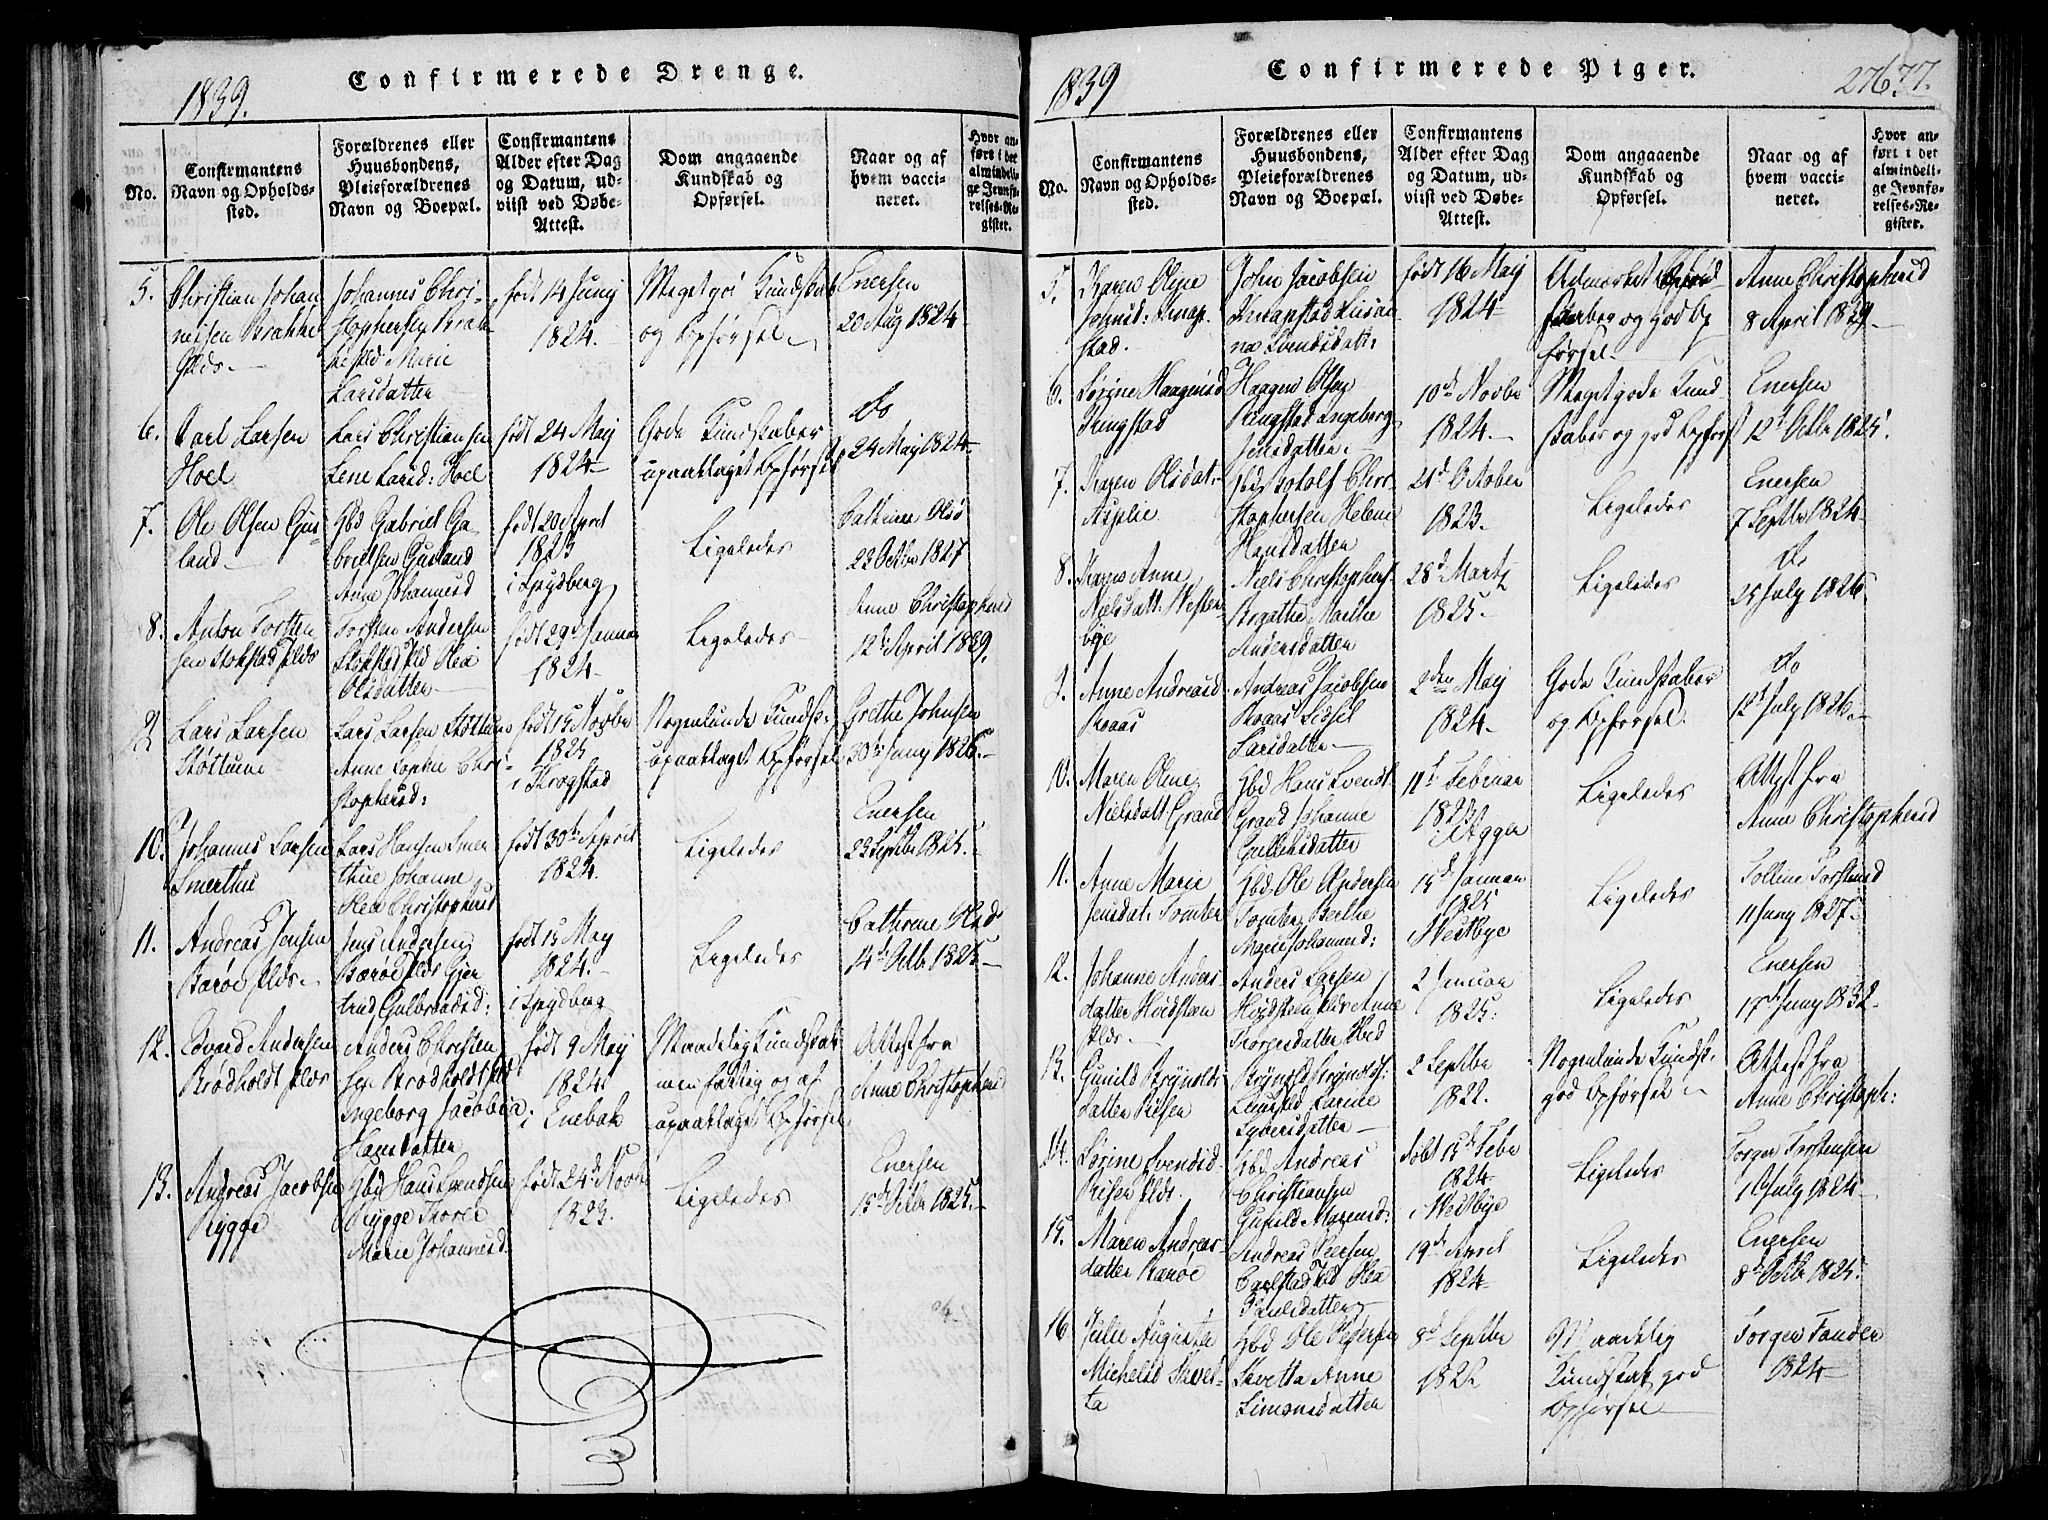 1839.
Confirmerede Drenge.
No.
Confirmantens Navn og Opholds-sted.
Forældrenes eller Huusbondens, Pleieforældrenes Navn og Boepæl.
Confirmantens Alder efter Dag og Datum, ud-viist ved Døbe-Attest.
Dom angaaende Kundskab og Opførsel.
Naar og af hvem vacci-neret.
Hvor an-ført i det almindeli-ge Jevnfø-relses-Re-gister.
5.
Christian Johan
nesen Krakke
Johannes Chri-
stophersen Krak
Marie
Larsdatten
født 14 Junij
1824.
Meget god Kundskab
og Opførsel
Enersen
20 Aug 1824
6.
Carl Larsen
Hoel
Lars Christiansen
Lene Larsd: Hoel
født 24 Maj
1824
Gode Kundskaber
upaaklaget Opførsel
do
24 May 1824
7.
Ole Olsen Gus-
land
Hbd Gabriel Ga
brielsen Gusland
Anne Johannesd
født 20 April
1823
i Spydberg
Ligeledes
Cathrine Olsd
23 Octbr 1827
8.
Anton Torsten
sen Stokstad Elds
Torsten Andersen
Stokstad Eld Olea
Olsdatten
født 29d Januar
1824
Ligeledes
Anne Christophersd
12te April 1839.
9
Lars Larsen
Støttum
Lars Larsen Støttum
Anne Sophie Chri-
stophersd:
født 15 Novbr
1823
i Krogstad
Nogenlunde Kundsk:
upaaklaget Opførsel
Grethe Johnsen
30te Juny 1826.
10.
Johannes Larsen
Smerthu
Lars Hansen Smer
thue Johanne
Olea Christophersd
født 30te April
1824.
Ligeledes
Enersen
23 Septbr 1825.
11.
Andreas Jensen
Barøe Elds
Jens Andersen
Barøe Elds Gjer
trud Gulbrandsd:
født 15 May
1824.
i Spydberg
Ligeledes
Cathrine Olsd
14d Octbr 1825
12.
Edvard Andersen
Brødholdt Elds
Anders Christen
sen Brødholdt Eld
Ingeborg Jacobea
Hansdatten
født 9 May
1824
i Enebak
Maadelig Kundskab
men fattig og af
upaaklaget Opførsel
Attest fra
Anne Christophersd
13.
Andreas Jacobsen
Rygge
Hbd Hans Svendsen
Rygge Thore
Marie Johannesd.
født 24de Novbr
1823.
Ligeledes
Enersen
15de Octbr 1825.
1839
Confirmerede Piger.
276.77.
No.
Confirmantens Navn og Opholds-sted.
Forældrenes eller Huusbondens, Pleieforældrenes Navn og Boepæl.
Confirmantens Alder efter Dag og Datum, ud-viist ved Døbe-Attest.
Dom angaaende Kundskab og Opførsel.
Naar og af hvem vacci-neret.
Hvor an-ført i det almindeli-ge Jevnfø-relses-Re-gister.
5.
Karen Oline
Johnsd: Knap
stad.
John Jacobsen
Knapstad
Svendsdatt:
født 16 Maj
1824
Udmærket
og god Op
førsel
Anne Christophersd
8 April 1839.
6.
Sørine Haagensd
Ringstad
Haagen Olsen
Ringstad Ingeborg
Jensdatten.
10de Novbr
1824.
Meget gode Kund
skaber og god Opførsel
Enersen
12d Octbr 1825.
7.
Karen Olsdat:
Asplie
Hbd Rotolf Chri-
stophersen Helene
Hansdatten
21d October
1823.
Ligeledes
Enersen
7 Septbr 1824
8.
Karen Anne
Nielsdatt: Westen
bye
Niels Christophers
Agathe Marthe
Andersdatten
28d Martz
1825.
Ligeledes
do
25 July 1826
9.
Anne Andreasd
Kraas
Andreas Jacobsen
Kraas Sidsel
Larsdatten
2den May
1824.
Gode Kundskaber
og Opførsel.
do
12t July 1826.
10.
Maren Oline
Nielsdatt Grand
Hbd Hans Svends
Grand Johanne
Gullersdatten
11te Februar
1823
i Agger
Ligeledes
Attest fra
Anne Christophersd
11.
Anne Marie
Jensdat: Tomter
Hbd Ole Andersen
Tomter Berthe
Marie Johannesd:
15d Januar
1825
Westbye
Ligeledes
Tolline Torstensd
11 Juny 1827.
12.
Johanne Anders-
datter Hvidsteen
Elds
Anders Larsen
Hvidsteen Elds Anne
Thoresdatten
2 Januar
1825:
Ligeledes
Enersen
17d Juny 1832
13.
Gunild Brynolds
datter
Brynold Brynolds:
Karine
Syversdatten
2 Septbr
1822.
Nogenlunde Kundsk:
god Opførsel
Attest fra
Anne Christoph:
14.
Sørine Svendsd
Riser Elds.
Hbd Andreas
Christiansen
Gunild Marensd:
døbt 15de Febr
1824
i Westbye
Ligeledes
Torger Torstensen
1 July 1824
15.
Maren Andreas-
datter Barøe
Andreas Peersen
Carlstad Eld Olea
Poulsdatten
19de April
1824
Ligeledes
Enersen
8d Octbr 1825.
16
Julie Augusta
Michelsd Skavet-
ta
Hbd Ole Pedersen
Skvetta Anne
Simonsdatten
8d Septbr
1822
Maadelig
Kundskab god
Opførsel
Torger Tander
1824